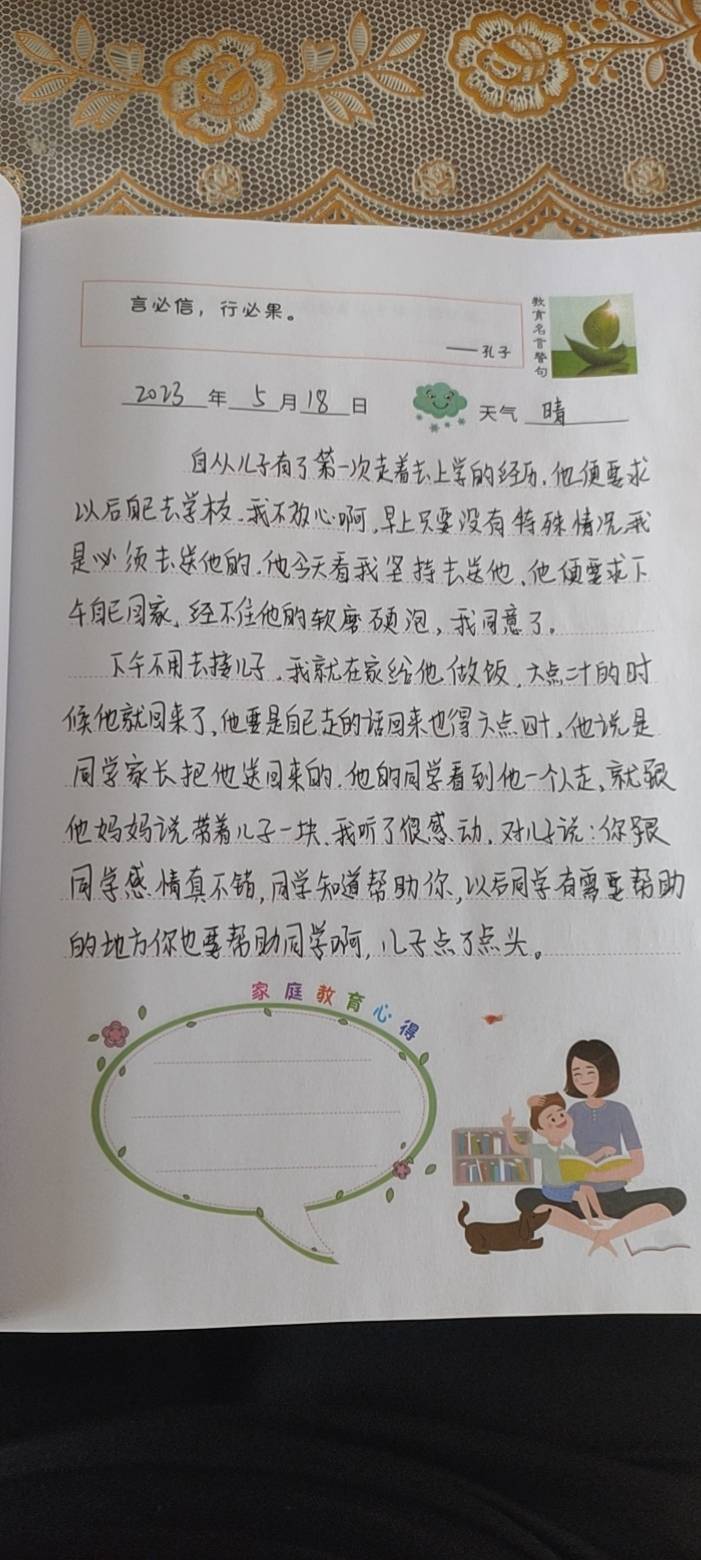 言必信，行必果。
——孔子
教育名言警句
2023年5月18日 天气 晴
自从儿子有了第一次走着去上学的经历，他便要求
以后自己去学校，我不放心啊，早上只要没有特殊情况我
是必须去送他的，他今天看我坚持去送他、他便要求下
午自己回家，经不住他的软磨硬泡，我同意了。
下午不用去接儿子，我就在家给他做饭，六点二十的时
候他就回来了，他要是自己走的话回来也得六点四十，他说是
同学家长把他送回来的，他的同学看到他一个人走、就跟
他妈妈说带着儿子一块、我听了很感动，对儿子说：你跟
同学感情真不错，同学知道帮助你，以后同学有需要帮助
的地方你也要帮助同学啊，儿子点了点头。
家庭教育心得